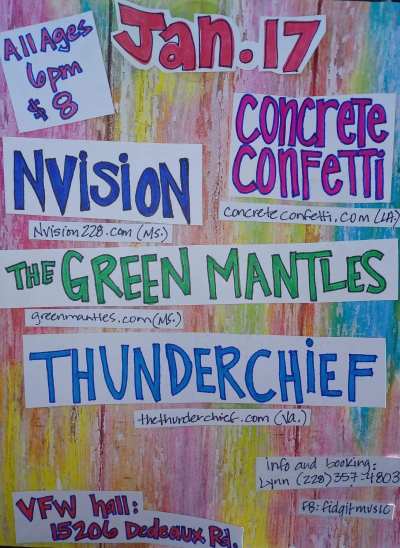 All Ages
6pm
$8
Jan. 17
Concrete
Confetti
concreteconfetti.com (LA.)
Nvision
Nvision228.com (Ms.)
The Green Mantles
greenmantles.com (Ms.)
Thunderchief
thethunderchief.com (Va.)
info and booking:
Lynn (228) 357-4803
FB: fidgitmusic
VFW hall:
15206 Dedeaux Rd.